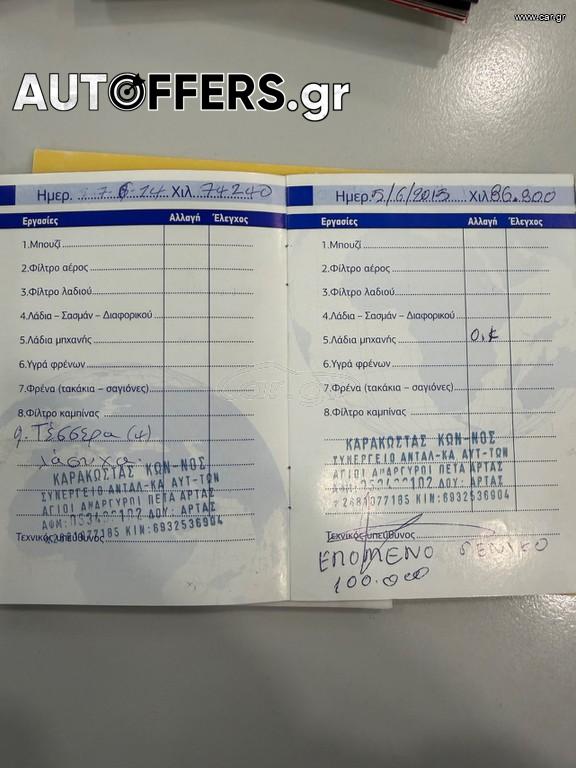 www.car.gr
AUTOFFERS.gr
Ημερ. 27-6-14 Χιλ. 74240
Εργασίες Αλλαγή Έλεγχος
1.Μπουζί
2.Φίλτρο αέρος
3.Φίλτρο λαδιού
4.Λάδια – Σασμάν – Διαφορικού
5.Λάδια μηχανής
6.Υγρά φρένων
7.Φρένα (τακάκια – σαγιόνες)
8.Φίλτρο καμπίνας
9. Τέσσερα (4)
λάστιχα
ΚΑΡΑΚΩΣΤΑΣ ΚΩΝ-ΝΟΣ
ΣΥΝΕΡΓΕΙΟ ΑΝΤΑΛ-ΚΑ ΑΥΤ-ΤΩΝ
ΑΓΙΟΙ ΑΝΑΡΓΥΡΟΙ ΠΕΤΑ ΑΡΤΑΣ
ΑΦΜ: ΔΟΥ: ΑΡΤΑΣ
2681077185 ΚΙΝ: 6932536904
Τεχνικός υπεύθυνος
Ημερ. 5/6/2015 Χιλ. 86.800
Εργασίες Αλλαγή Έλεγχος
1.Μπουζί
2.Φίλτρο αέρος
3.Φίλτρο λαδιού
4.Λάδια – Σασμάν – Διαφορικού
5.Λάδια μηχανής Ο.Κ
6.Υγρά φρένων
7.Φρένα (τακάκια – σαγιόνες)
8.Φίλτρο καμπίνας
ΚΑΡΑΚΩΣΤΑΣ ΚΩΝ-ΝΟΣ
ΣΥΝΕΡΓΕΙΟ ΑΝΤΑΛ-ΚΑ ΑΥΤ-ΤΩΝ
ΑΓΙΟΙ ΑΝΑΡΓΥΡΟΙ ΠΕΤΑ ΑΡΤΑΣ
ΑΦΜ: ΔΟΥ: ΑΡΤΑΣ
2681077185 ΚΙΝ: 6932536904
Τεχνικός υπεύθυνος
ΕΠΟΜΕΝΟ ΓΕΝΙΚΟ
100.000